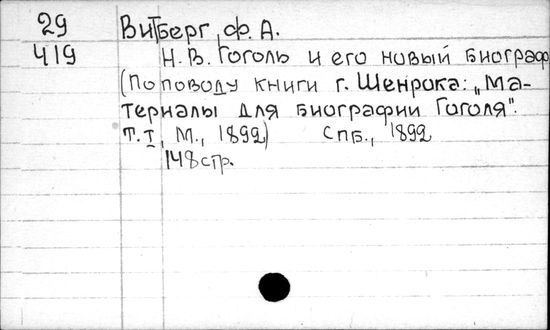 29 Витберг, Ф. А.
419 Н. В. Гоголь и его новый биограф
(По поводу книги г. Шенрока: „Ма-
териалы для биографии Гоголя".
Т. I, М., 1892) СПБ., 1892
148 стр.